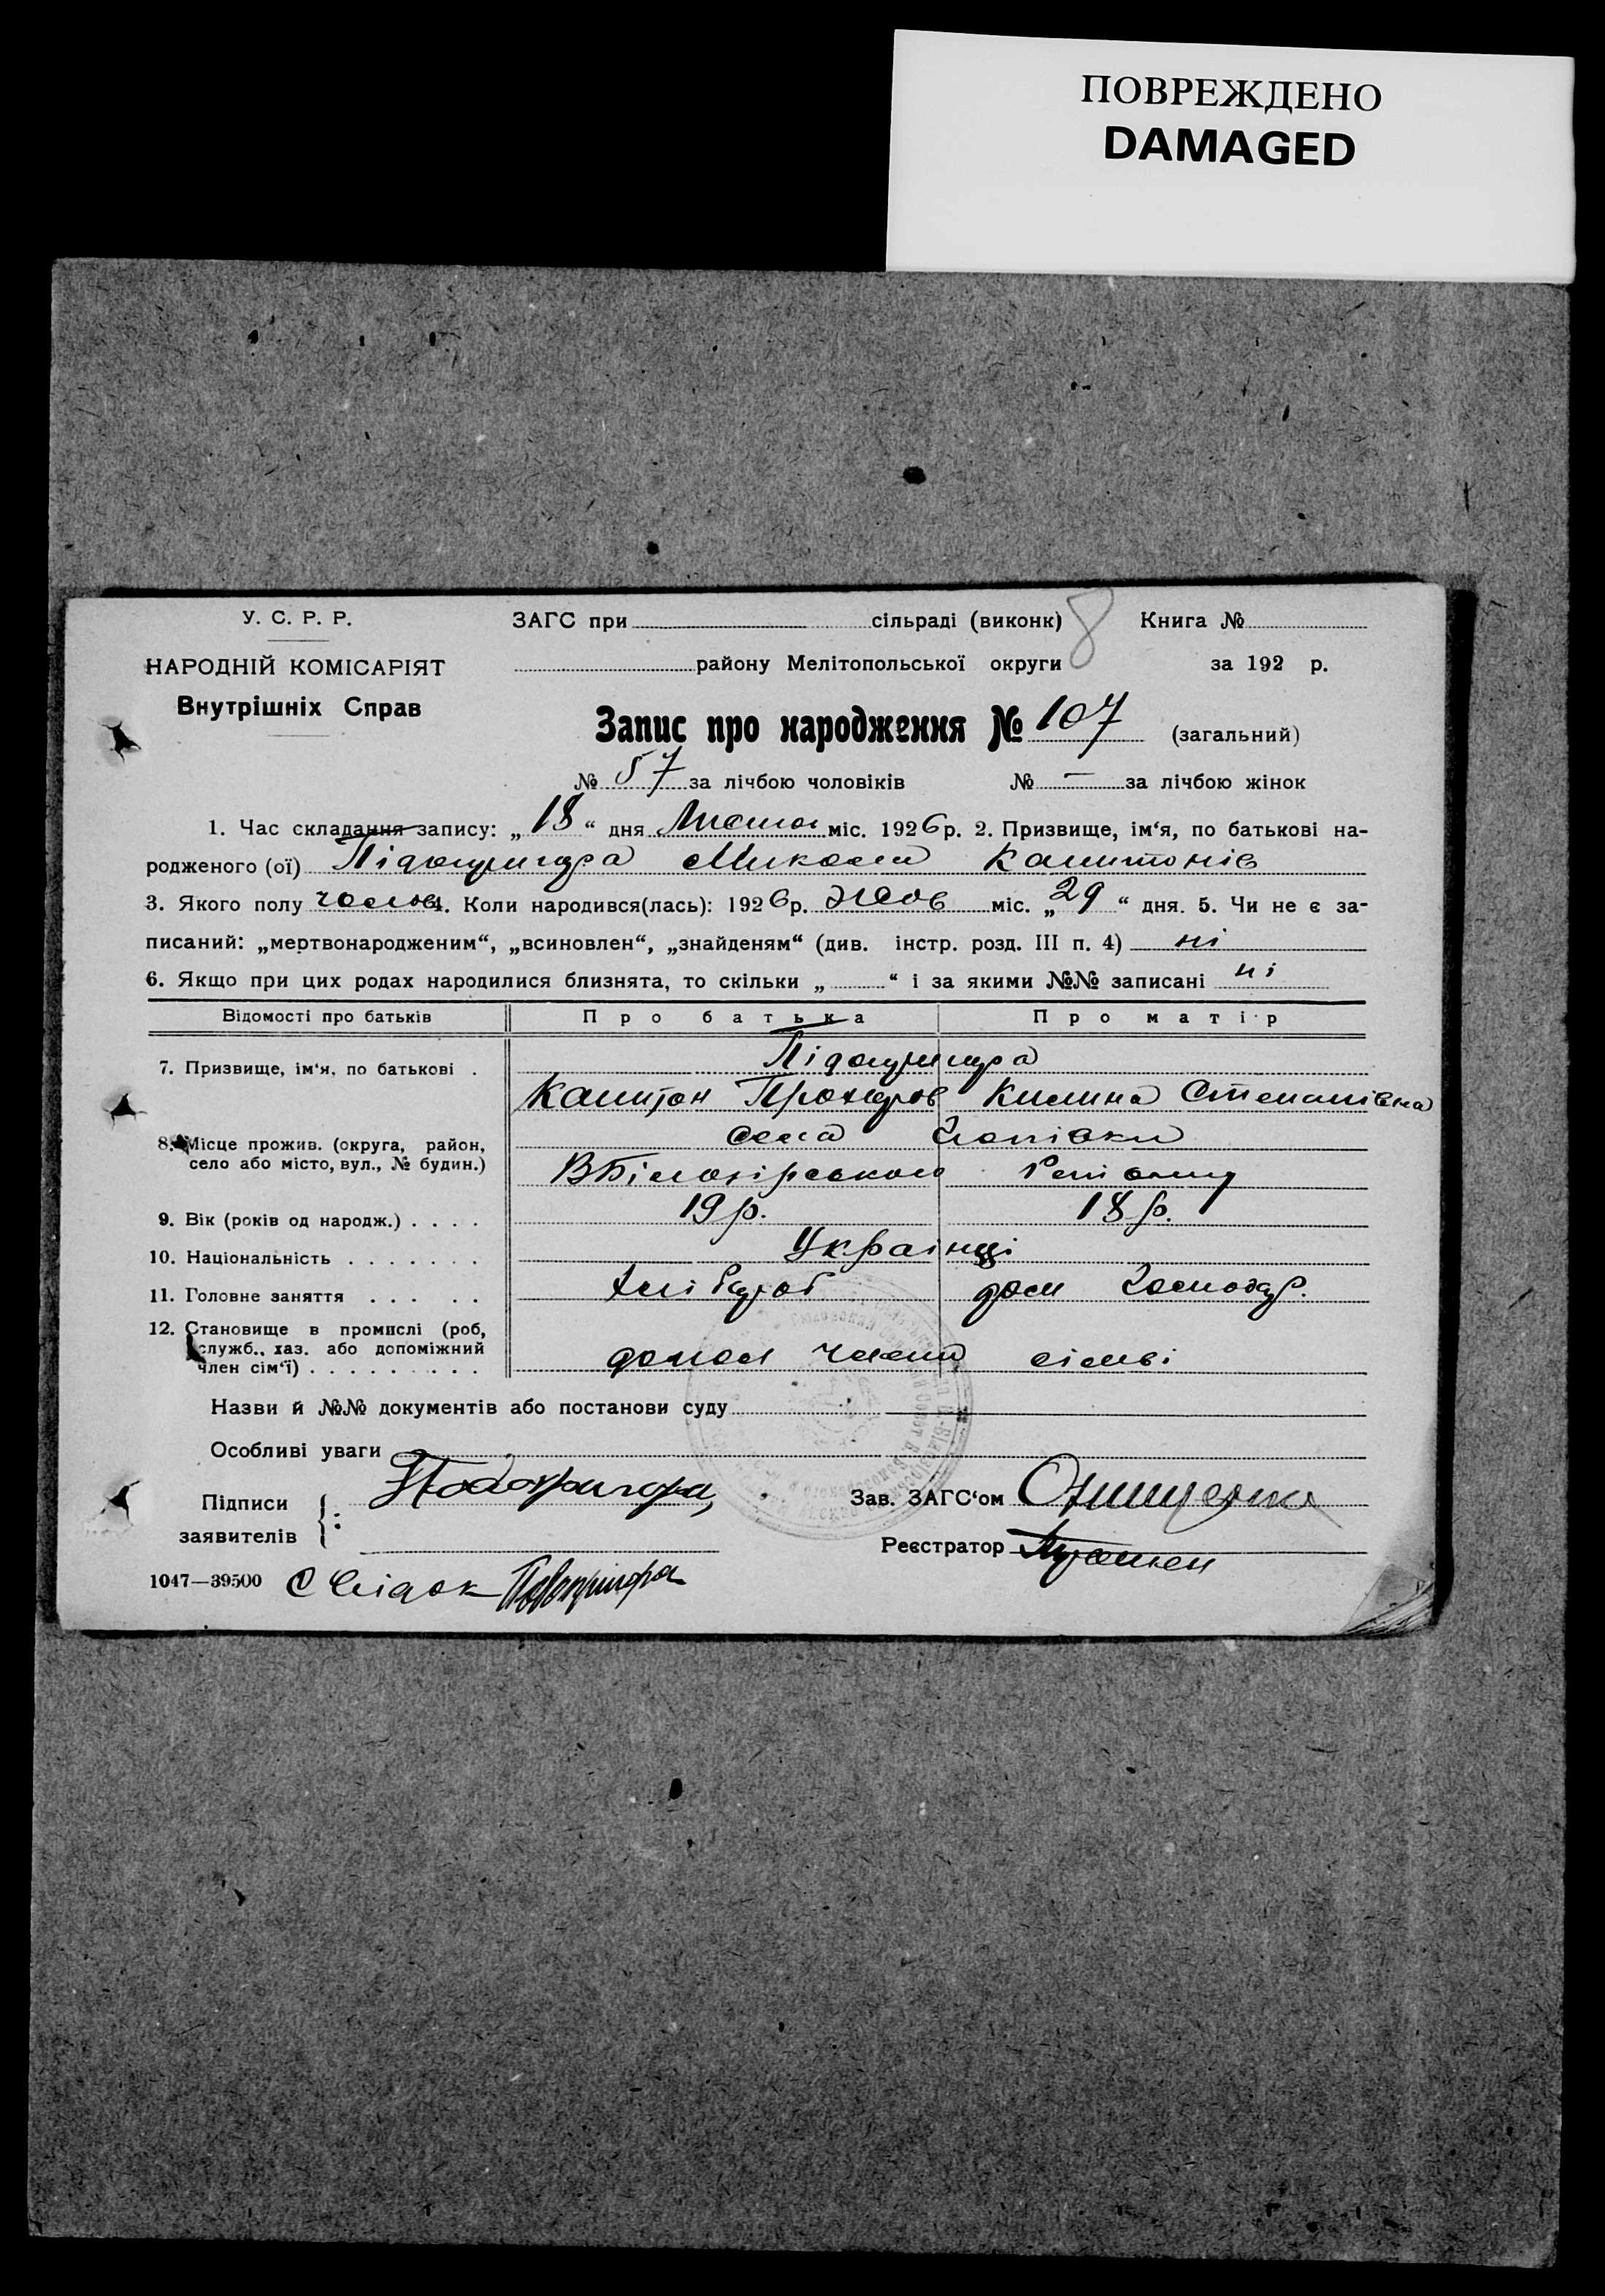 ПОВРЕЖДЕНО
DAMAGED
У. С. Р. Р.
ЗАГС при сільраді (виконк) 8 Книга №
НАРОДНІЙ КОМІСАРІЯТ
району Мелітопольської округи за 192 р.
Внутрішніх Справ
Запис про народження № 107 (загальний)
№ 57 за лічбою чоловіків № — за лічбою жінок
1. Час складання запису: „18“ дня міс. 1926 р. 2. Призвище, ім‘я, по батькові на-
родженого (ої) Підопригора Микола Капитонів
3. Якого полу чолов. 4. Коли народився(лась): 1926 р. міс. „29“ дня. 5. Чи не є за-
писаний: „мертвонародженим“, „всиновлен“, „знайденям“ (див. інстр. розд. III п. 4) ні
6. Якщо при цих родах народилися близнята, то скільки „ “ і за якими №№ записані ні
Відомості про батьків Про батька Про матір
7. Призвище, ім‘я, по батькові . Підопригора
Капитон Прохоров Килина Степанівна
8. Місце прожив. (округа, район, села
село або місто, вул., № будин.) ВБілозірського Району
9. Вік (років од народж.) . . . . 19 р. 18 р.
10. Національність . . . . . . . Украінці
11. Головне заняття . . . . . Хлібороб дом господар.
12. Становище в промислі (роб,
служб., хаз. або допоміжний
член сім‘ї) . . . . . . . . . допом члени сімві
Назви й №№ документів або постанови суду
Особливі уваги
Підписи Подопригора Зав. ЗАГС‘ом
заявителів
Реєстратор
1047—39500 Свідок Подопригора